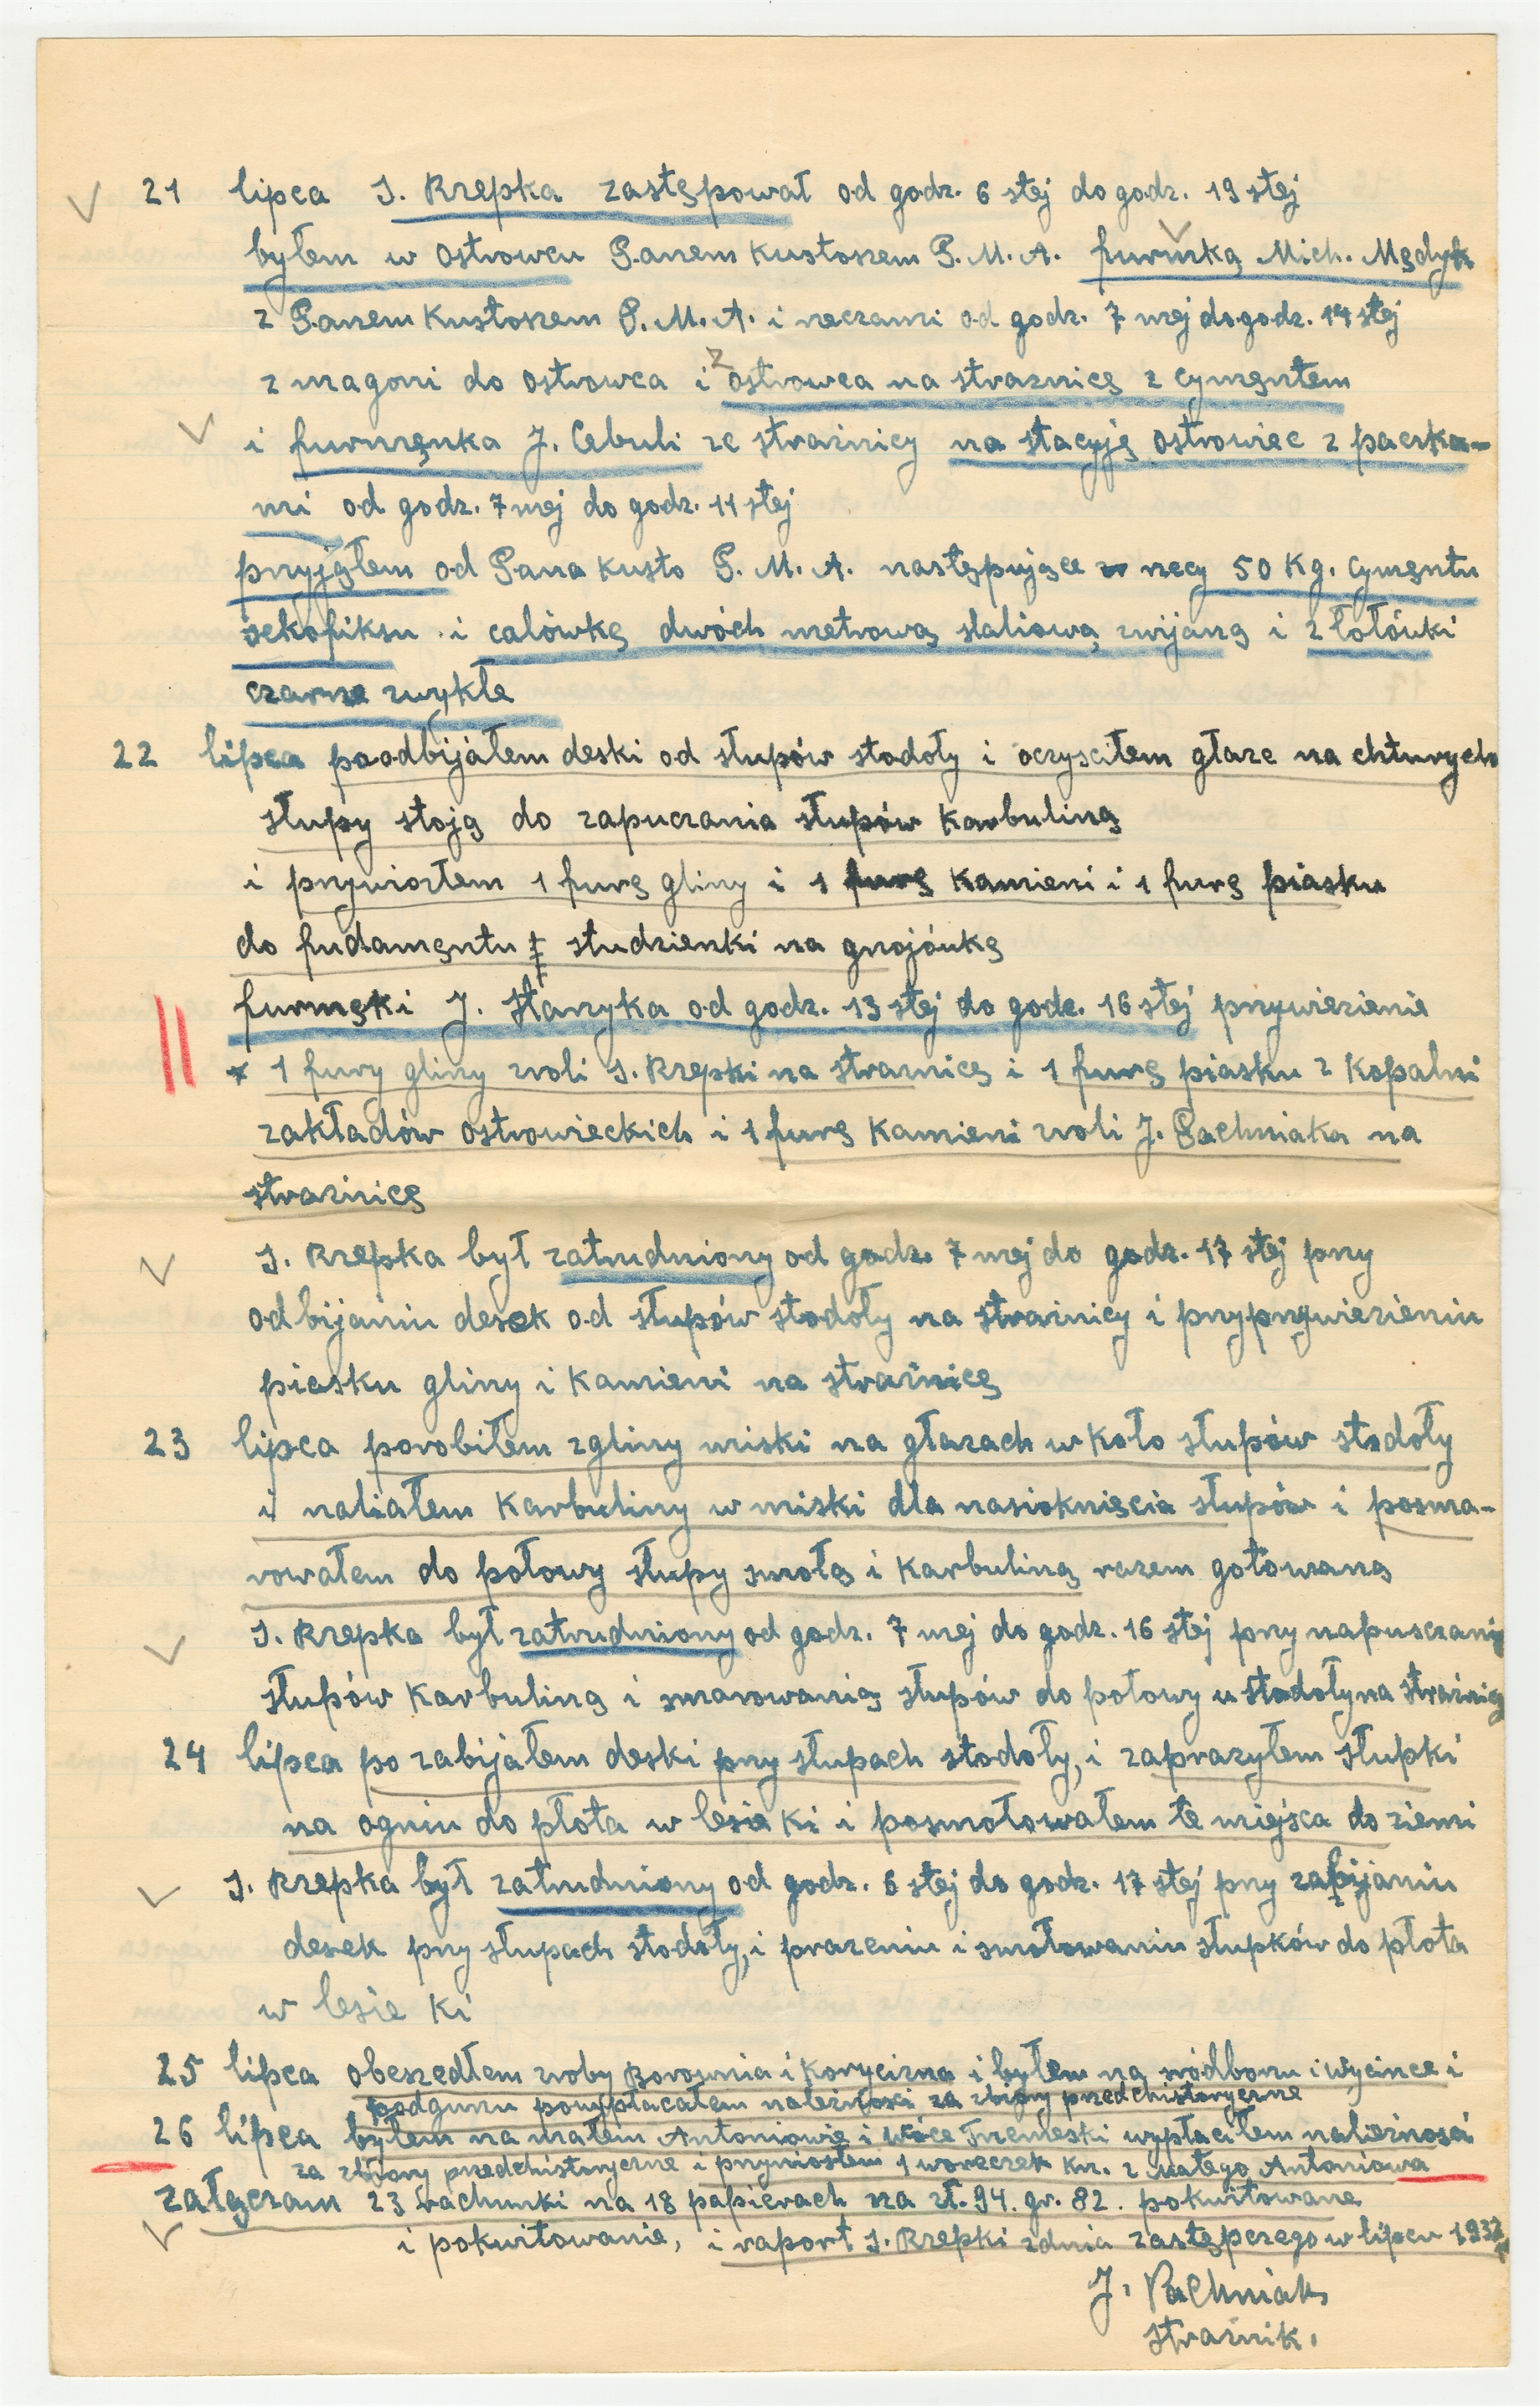 21 lipca J. Rzepka zastępował od godz. 6 stej do godz. 19 stej
byłem w ostrowcu P.anem Kustoszem P.M.A. furmką Mich. Mędyk
z P.anem Kustoszem P.M.A. i rzeczami od godz. 7 mej do godz. 14 stej
z magoni do ostrowca i z ostrowca na straznicę z cymentem
i furmęnka J. Cebuli ze strażnicy na stacyję ostrowiec z paczka-
mi od godz. 7 mej do godz. 11 stej
przyjąłem od P.ana kusto P.M.A. następujące rzecy 50 Kg. cymęntu
sekofiksu i calówkę dwóch metrową staliową zwijaną i 2 łołówki
czarne zwykłe
22 lipca poodbijałem deski od słupów stodoły i oczyściłem głaze na chturych
słupy stoją do zapuczania słupów Karbuliną
i przywiozłem 1 furę gliny i 1 furę Kamieni i 1 furę piasku
do fudamęntu studzienki na gnojówkę
furmęki J. Stanyka od godz. 13 stej do godz. 16 stej przywiezienie
1 fury gliny zroli J. Rzepki na straznicę i 1 furę piasku z Kopalni
zakładów ostrowieckich i 1 furę Kamieni zroli J. Pachniaka na
strażnicę
J. Rzepka był zatrudniony od godz. 7 mej do godz. 17 stej przy
odbijaniu desek od słupów stodoły na strażnicy i przyprzywiezieniu
piasku gliny i Kamieni na strażnicę
23 lipca porobiłem zgliny miski na głazach w koło słupów stodoły
i naliałem Karbuliny w miski dla nasioknięcia słupów i posma-
rowałem do połowy słupy smołą i Karbuliną razem gotowaną
J. Rzepka był zatrudniony od godz. 7 mej do godz. 16 stej przy napuszczaniu
słupów Karbuliną i smarowanią słupów do połowy u stodoły na strażnicy
24 lipca po zabijałem deski przy słupach stodoły, i zaprazyłem słupki
na ogniu do płota w lesie Ki i posmołowałem te miejsca do ziemi
J. Rzepka był zatrudniony od godz. 6 stej do godz. 17 stej przy zabijaniu
desek przy słupach stodoły, i prazeniu i smołowaniu słupków do płota
w lesie Ki
25 lipca obeszedłem zroby Borownia i Korycizna i byłem na wódboru i Wycince i
podguru powypłacałem należności za zbiory przedchistoryczne
26 lipca byłem na małem Antoniowie i wypłaciłem należności
za zbiory przedchistoryczne i przyniosłem 1 woreczek Krz. z małego Antoniowa
załączam 23 rachunki na 18 papierach na zł. 94. gr. 82. pokwitowane
i pokwitowanie, i raport J. Rzepki zdnia zastępczego w lipcu 1932
J. Pachniak
strażnik.